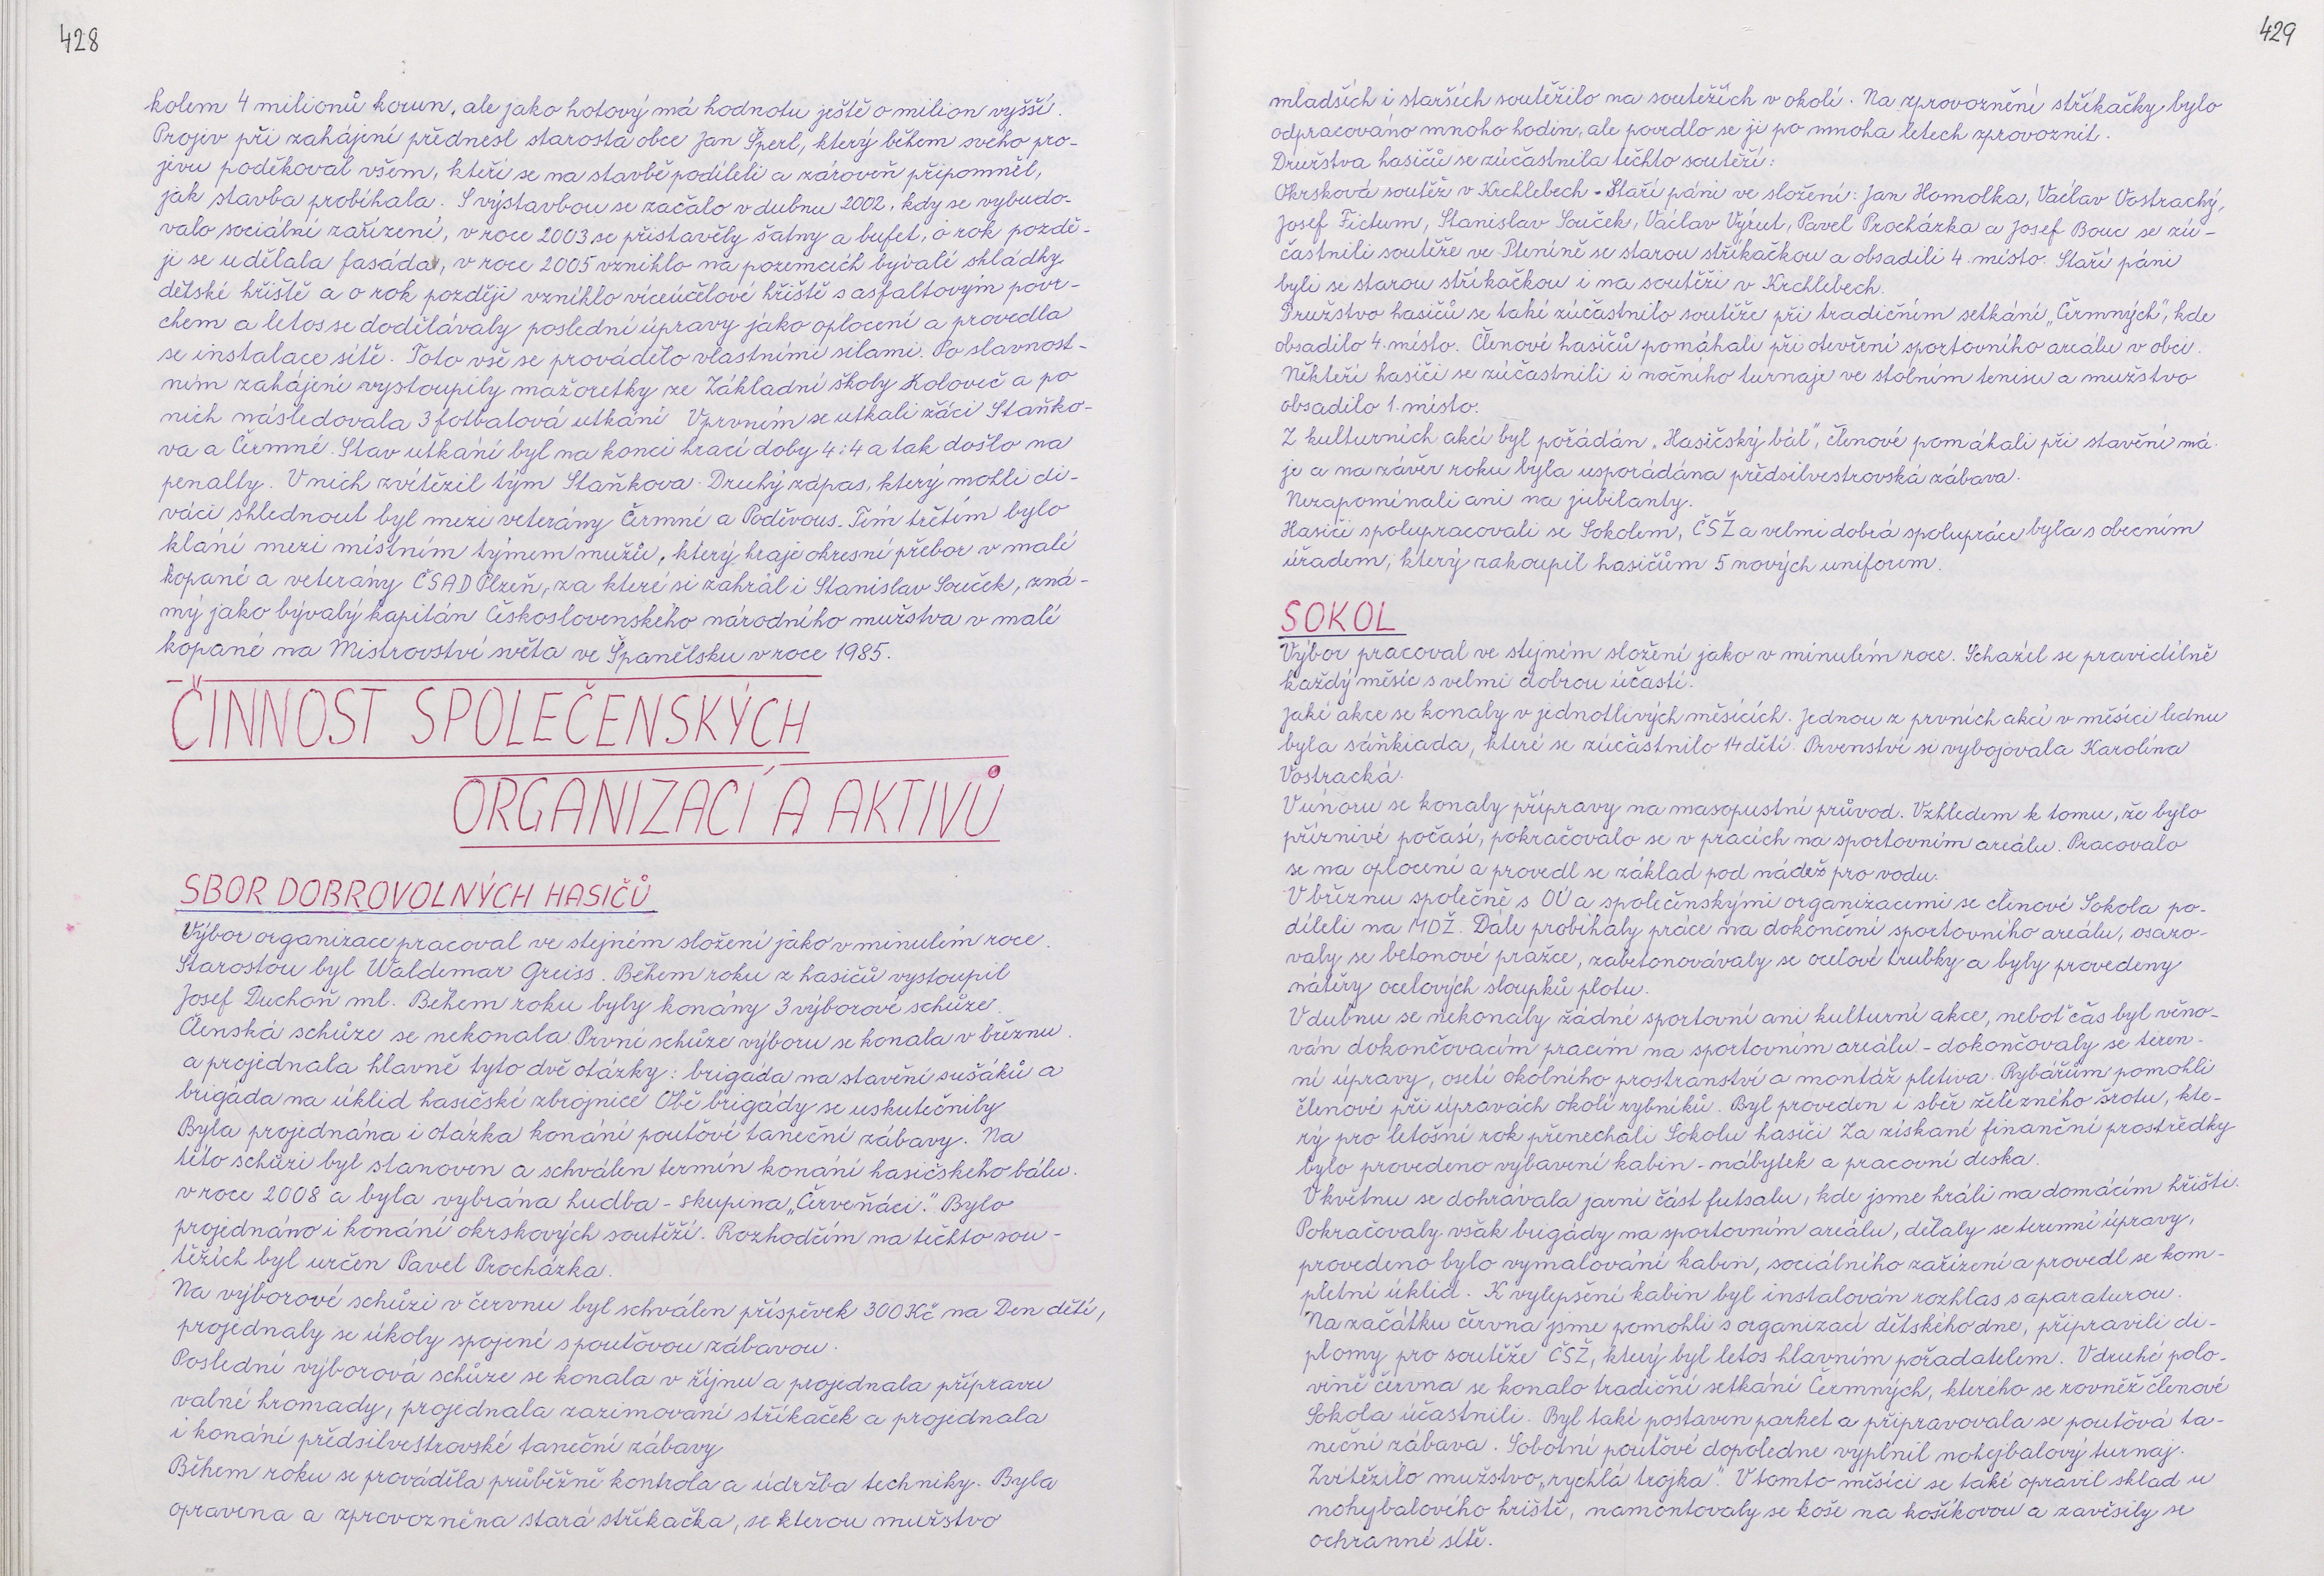 428
kolem 4 milionů korun, ale jako hotový má hodnotu ještě o milion vyšší.
Projev při zahájení přednesl starosta obce Jan Šperl, který během svého pro-
jevu poděkoval všem, kteří se na stavbě podíleli a zároveň připomněl,
jak stavba probíhala. S výstavbou se začalo v dubnu 2002, kdy se vybudo-
valo sociální zařízení, v roce 2003 se přistavěly šatny a bufet, o rok pozdě-
ji se udělala fasáda, v roce 2005 vzniklo na pozemcích bývalé skládky
dětské hřiště a o rok později vzniklo víceúčelové hřiště s asfaltovým povr-
chem a letos se dodělávaly poslední úpravy jako oplocení a provedla
se instalace sítě. Toto vše se provádělo vlastními silami. Po slavnost-
ním zahájení vystoupily mažoretky ze Základní školy Koloveč a po
nich následovala 3 fotbalová utkání V prvním se utkali žáci Staňko-
va a Čermné. Stav utkání byl na konci hrací doby 4:4 a tak došlo na
penalty. V nich zvítězil tým Staňkova. Druhý zápas, který mohli di-
váci shlednout byl mezi veterány Čermné a Poděvous. Tím třetím bylo
klání mezi místním týmem mužů, který hraje okresní přebor v malé
kopané a veterány ČSAD Plzeň, za které si zahrál i Stanislav Souček, zná-
mý jako bývalý kapitán Československého národního mužstva v malé
kopané na Mistrovství světa ve Španělsku v roce 1985.
ČINNOST SPOLEČENSKÝCH
ORGANIZACÍ A AKTIVŮ
SBOR DOBROVOLNÝCH HASIČŮ
Výbor organizace pracoval ve stejném složení jako v minulém roce.
Starostou byl Waldemar Greiss. Během roku z hasičů vystoupil
Josef Duchoň ml. Během roku byly konány 3 výborové schůze.
Členská schůze se nekonala. První schůze výboru se konala v březnu.
a projednala hlavně tyto dvě otázky: brigáda na stavění sušáků a
brigáda na úklid hasičské zbrojnice Obě brigády se uskutečnily
Byla projednána i otázka konání pouťové taneční zábavy. Na
této schůzi byl stanoven a schválen termín konání hasičského bálu.
v roce 2008 a byla vybrána hudba - skupina „Červeňáci". Bylo
projednáno i konání okrskových soutěží. Rozhodčím na těchto sou-
těžích byl určen Pavel Procházka.
Na výborové schůzi v červnu byl schválen příspěvek 300 Kč na Den dětí,
projednaly se úkoly spojené s pouťovou zábavou.
Poslední výborová schůze se konala v říjnu a projednala přípravu
valné hromady, projednala zazimování stříkaček a projednala
i konání předsilvestrovské taneční zábavy
Během roku se prováděla průběžně kontrola a údržba techniky. Byla
opravena a zprovozněna stará stříkačka, se kterou mužstvo
429
mladších i starších soutěžilo na soutěžích v okolí. Na zprovoznění stříkačky bylo
odpracováno mnoho hodin, ale povedlo se ji po mnoha letech zprovoznit.
Družstva hasičů se zúčastnila těchto soutěží:
Okrsková soutěž v Krchlebech - Staří páni ve složení: Jan Homolka, Václav Vostrachý,
Josef Fictum, Stanislav Souček, Václav Výrut, Pavel Procházka a Josef Bouc se zú-
častnili soutěže ve Pleníně se starou stříkačkou a obsadili 4. místo. Staří páni
byli se starou stříkačkou i na soutěži v Krchlebech.
Družstvo hasičů se také zúčastnilo soutěže při tradičním setkání „Čermných", kde
obsadilo 4. místo. Členové hasičů pomáhali při otevření sportovního areálu v obci.
Někteří hasiči se zúčastnili i nočního turnaje ve stolním tenisu a mužstvo
obsadilo 1. místo.
Z kulturních akcí byl pořádán „Hasičský bál", členové pomáhali při stavění má-
je a na závěr roku byla usporádána předsilvestrovská zábava.
Nezapomínali ani na jubilanty.
Hasiči spolupracovali se Sokolem, ČSŽ a velmi dobrá spolupráce byla s obecním
úřadem, který zakoupil hasičům 5 nových uniforem.
SOKOL
Výbor pracoval ve stejném složení jako v minulém roce. Scházel se pravidelně
každý měsíc s velmi dobrou účastí.
Jaké akce se konaly v jednotlivých měsících. Jednou z prvních akcí v měsíci lednu
byla sáňkiada, které se zúčastnilo 14 dětí. Prvenství si vybojovala Karolína
Vostracká.
V únoru se konaly přípravy na masopustní průvod. Vzhledem k tomu, že bylo
příznivé počasí, pokračovalo se v pracích na sportovním areálu. Pracovalo
se na oplocení a provedl se základ pod nádrž pro vodu.
V březnu společně s OÚ a společenskými organizacemi se členové Sokola po-
díleli na MDŽ. Dále probíhaly práce na dokončení sportovního areálu, osazo-
valy se betonové pražce, zabetonovávaly se ocelové trubky a byly provedeny
nátěry ocelových sloupků plotu.
V dubnu se nekonaly žádné sportovní ani kulturní akce, neboť čas byl věno-
ván dokončovacím pracím na sportovním areálu - dokončovaly se terén-
ní úpravy, osetí okolního prostranství a montáž pletiva. Rybářům pomohli
členové při úpravách okolí rybníků. Byl proveden i sběr železného šrotu, kte-
rý pro letošní rok přenechali Sokolu hasiči Za získané finanční prostředky
bylo provedeno vybavení kabin - nábytek a pracovní deska.
V květnu se dohrávala jarní část futsalu, kde jsme hráli na domácím hřišti.
Pokračovaly však brigády na sportovním areálu, dělaly se terenní úpravy,
provedeno bylo vymalování kabin, sociálního zařízení a provedl se kom-
pletní úklid. K vylepšení kabin byl instalován rozhlas s aparaturou.
Na začátku června jsme pomohli s organizací dětského dne, připravili di-
plomy pro soutěže ČSŽ, který byl letos hlavním pořadatelem. V druhé polo-
vině června se konalo tradiční setkání Čermných, kterého se rovněž členové
Sokola účastnili. Byl také postaven parket a připravovala se pouťová ta-
neční zábava. Sobotní pouťové dopoledne vyplnil nohejbalový turnaj.
Zvítězilo mužstvo „rychlá trojka". V tomto měsíci se také opravil sklad u
nohybalového hřiště, namontovaly se koše na košíkovou a zavěsily se
ochranné sítě.